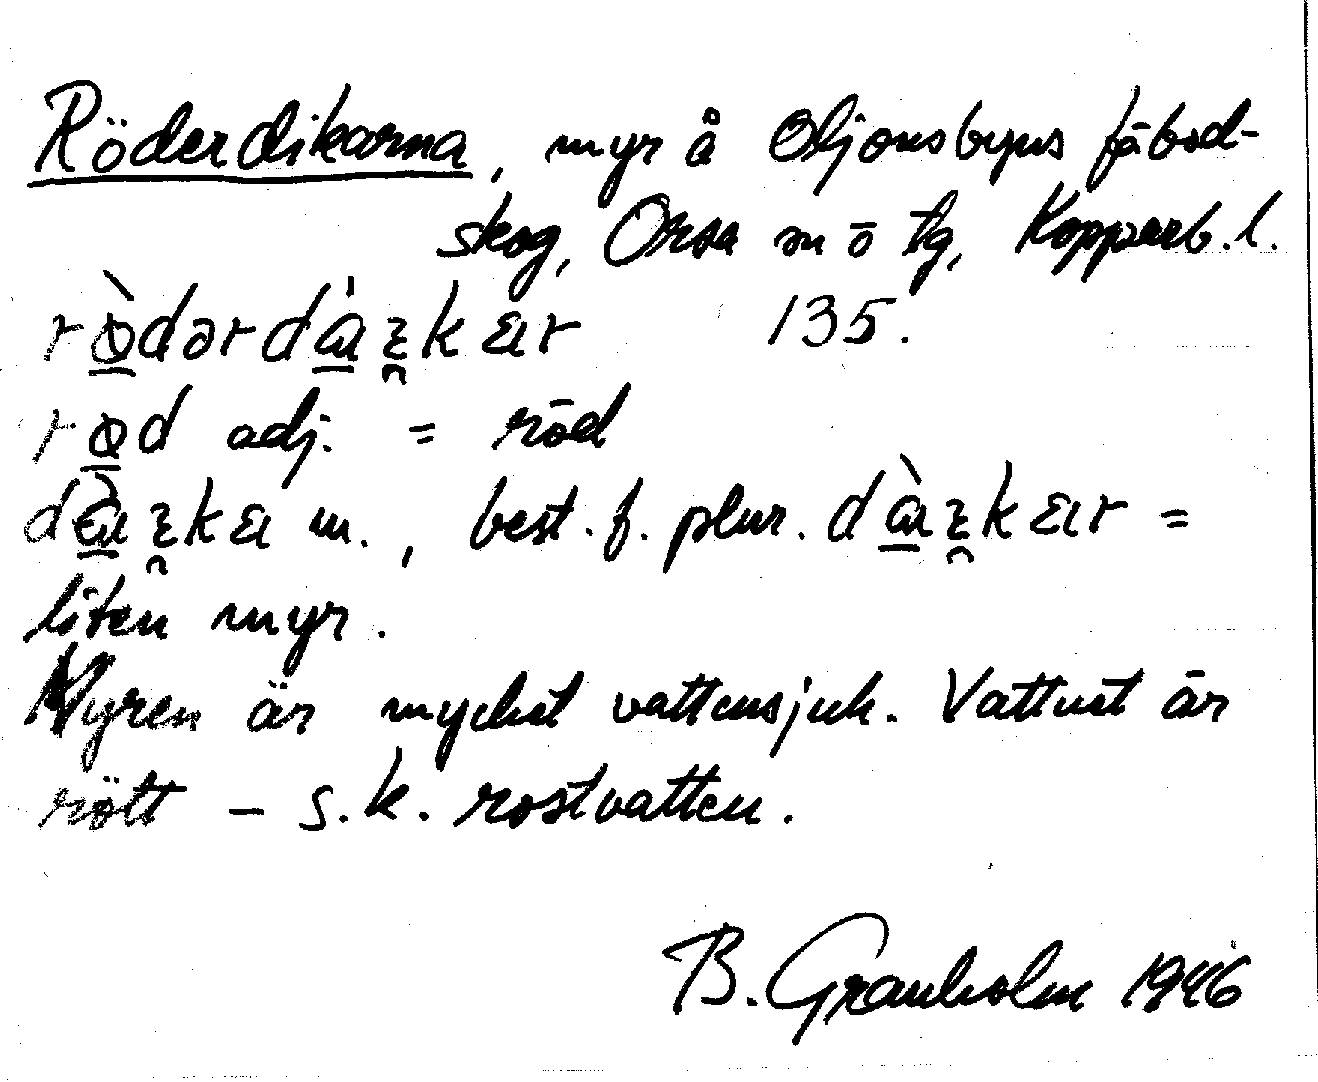 Röderdikarna, myr å Oljonsbyns fäbod-
skog, Orsa sn ö tg, Kopparb. l.
135.
adj. = röd
m., best. f. plur. =
liten myr.
Myren är mycket vattensjuk. Vattnet är
rött – s.k. rostvatten.
B. Granholm 1946